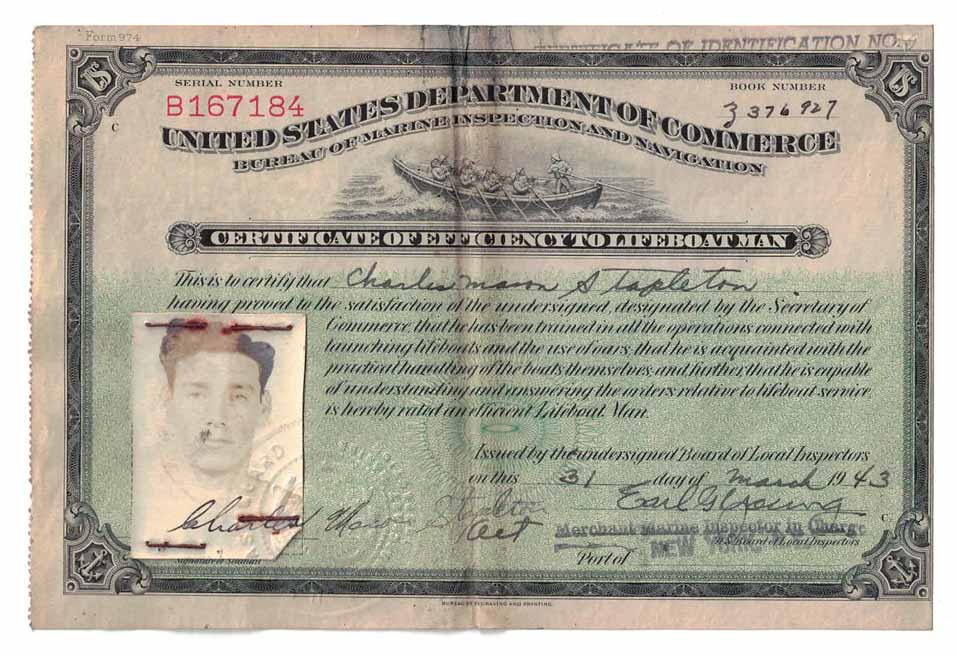 Form 974
CERTIFICATE OF IDENTIFICATION NO.
SERIAL NUMBER
B167184
BOOK NUMBER
Z 376 927
UNITED STATES DEPARTMENT OF COMMERCE
BUREAU OF MARINE INSPECTION AND NAVIGATION
CERTIFICATE OF EFFICIENCY TO LIFEBOATMAN
This is to certify that Charles Mason Stapleton
having proved to the satisfaction of the undersigned, designated by the Secretary of
Commerce, that he has been trained in all the operations connected with
launching lifeboats and the use of oars; that he is acquainted with the
practical handling of the boats themselves; and further, that he is capable
of understanding and answering the orders relative to lifeboat service,
is hereby rated an efficient Lifeboat Man.
Issued by the undersigned Board of Local Inspectors
on this 31 day of March 1943
Earl G
Charles Mason Stapleton
Act
Merchant Marine Inspector In Charge
Signature of Seaman
U.S. Board of Local Inspectors
Port of NEW YORK
BUREAU OF ENGRAVING AND PRINTING
C
C